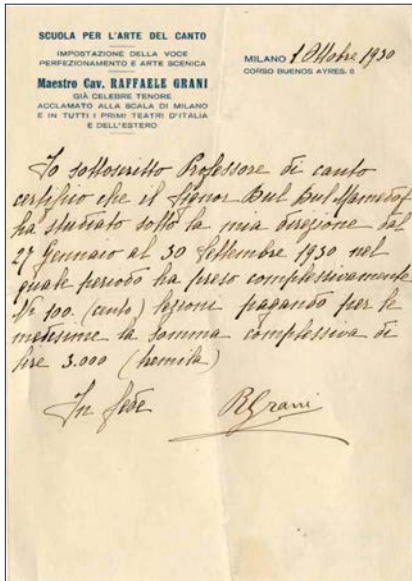 SCUOLA PER L'ARTE DEL CANTO
IMPOSTAZIONE DELLA VOCE
PERFEZIONAMENTO E ARTE SCENICA
Maestro Cav. RAFFAELE GRANI
GIÀ CELEBRE TENORE
ACCLAMATO ALLA SCALA DI MILANO
E IN TUTTI I PRIMI TEATRI D'ITALIA
E DELL'ESTERO
MILANO 1 Ottobre 1930
CORSO BUENOS AYRES. 8
Io sottoscritto Professore di canto
certifico che il Signor Bul Bul Mamedof
ha studiato sotto la mia direzione dal
27 Gennaio al 30 Settembre 1930 nel
quale periodo ha preso complessivamente
N. 100. (cento) lezioni pagando per le
medesime la somma complessiva di
lire 3.000 (tremila)
In fede
R Grani